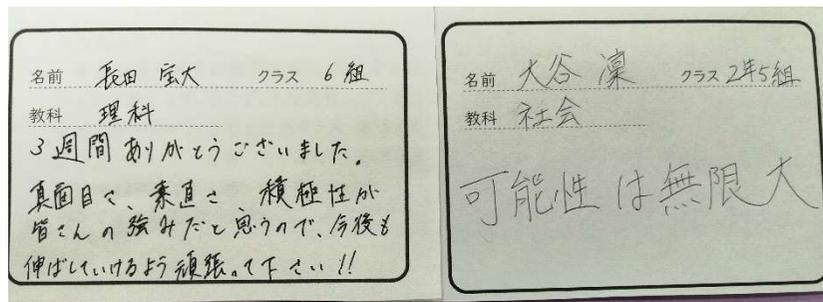 名前 長田 宝大 クラス 6組
教科 理科
3週間ありがとうございました。
真面目さ、素直さ、積極性が
皆さんの強みだと思うので、今後も
伸ばしていけるよう頑張って下さい!!
名前 大谷 凜 クラス 2年5組
教科 社会
可能性は無限大